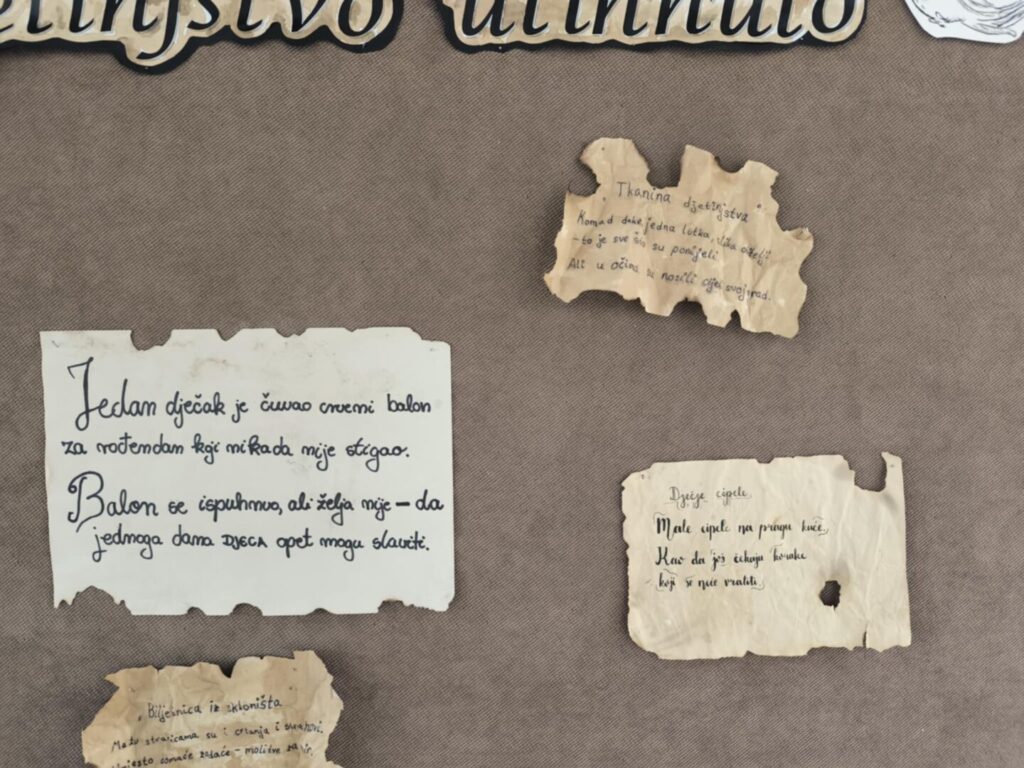 utihnulo
" Tkanina djetinjstva "
Komad deke, jedna lutka,
- to je sve što su ponijeli
Ali u očima su nosili cijeli svoj grad.
Jedan dječak je čuvao crveni balon
za rođendan koji nikada nije stigao.
Balon se ispuhnuo, ali želja nije – da
jednoga dana DJECA opet mogu slaviti.
Dječje cipele
Male cipele na pragu kuće,
Kao da još čekaju korake
koji se neće vratiti.
" Bilježnica iz skloništa
Među stranicama su i crtanja i strahovi.
Umjesto domaće zadaće - molitve za mir.